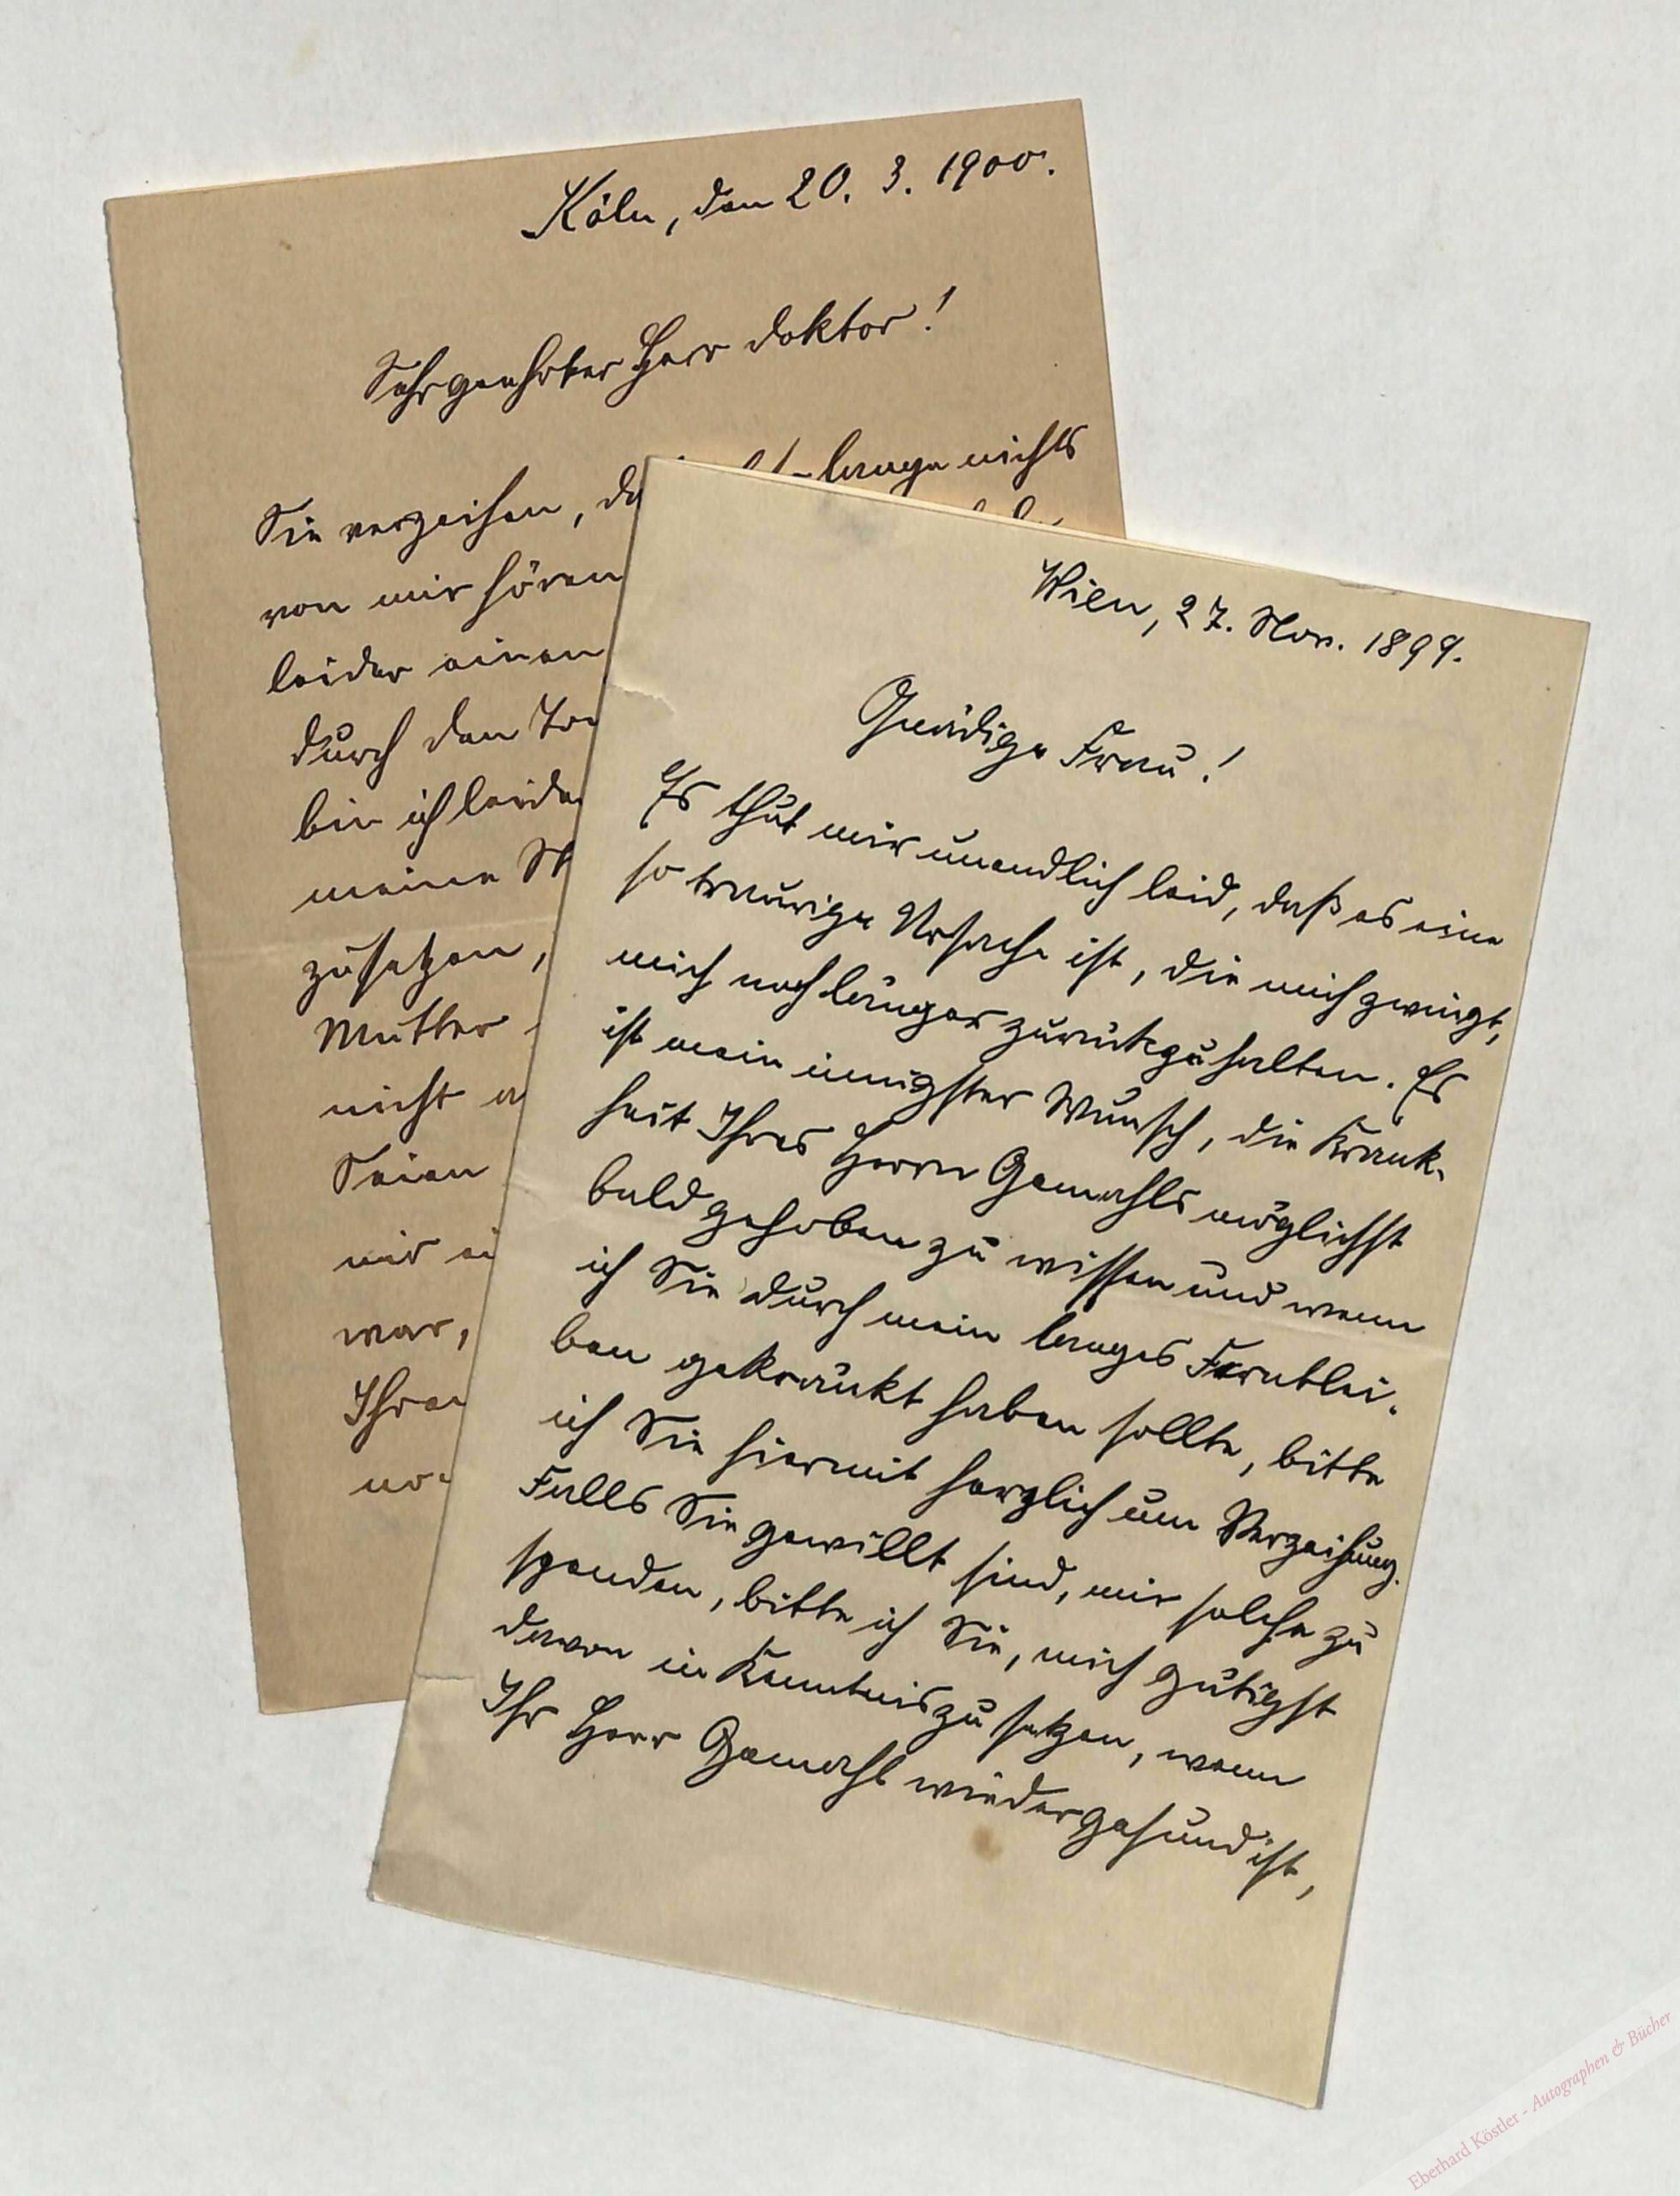 Köln, den 20. 3. 1900.
Sehrgeehrter Herr Doktor!
lange nichts
Sie verzeihen,
von mir hören
leider einen
durch den
bin ich
meine
zusetzen,
Mutter
nicht
Seien
mir
war,
Wien, 27. Nov. 1899.
Gnädige Frau!
Es thut mir unendlich leid, daß es eine
so traurige Ursache ist, die mich zwingt,
mich noch länger zurückzuhalten. Es
ist mein innigster Wunsch, die Krank-
heit Ihres Herrn Gemahls möglichst
bald gehoben zu wissen und wenn
ich Sie durch mein langes Fernblei-
ben gekränkt haben sollte, bitte
ich Sie hiermit herzlich um Verzeihung.
Falls Sie gewillt sind, mir solche zu
spenden, bitte ich Sie, mich gütigst
davon in Kenntnis zu setzen, wenn
Ihr Herr Gemahl wieder gesund ist,
Eberhard Köstler - Autographen & Bücher